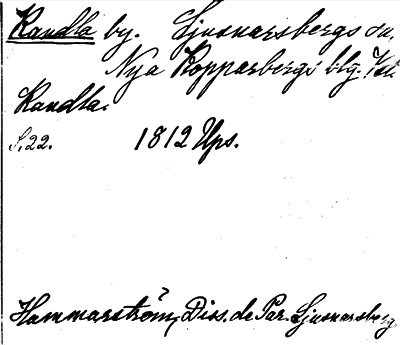 Kandla by. Ljusnarsbergs sn,
Nya Kopparbergs blg.
Kandla.
S. 22. 1812 Ups.
Hammarström, Diss. de Par. Ljusnarsberg.